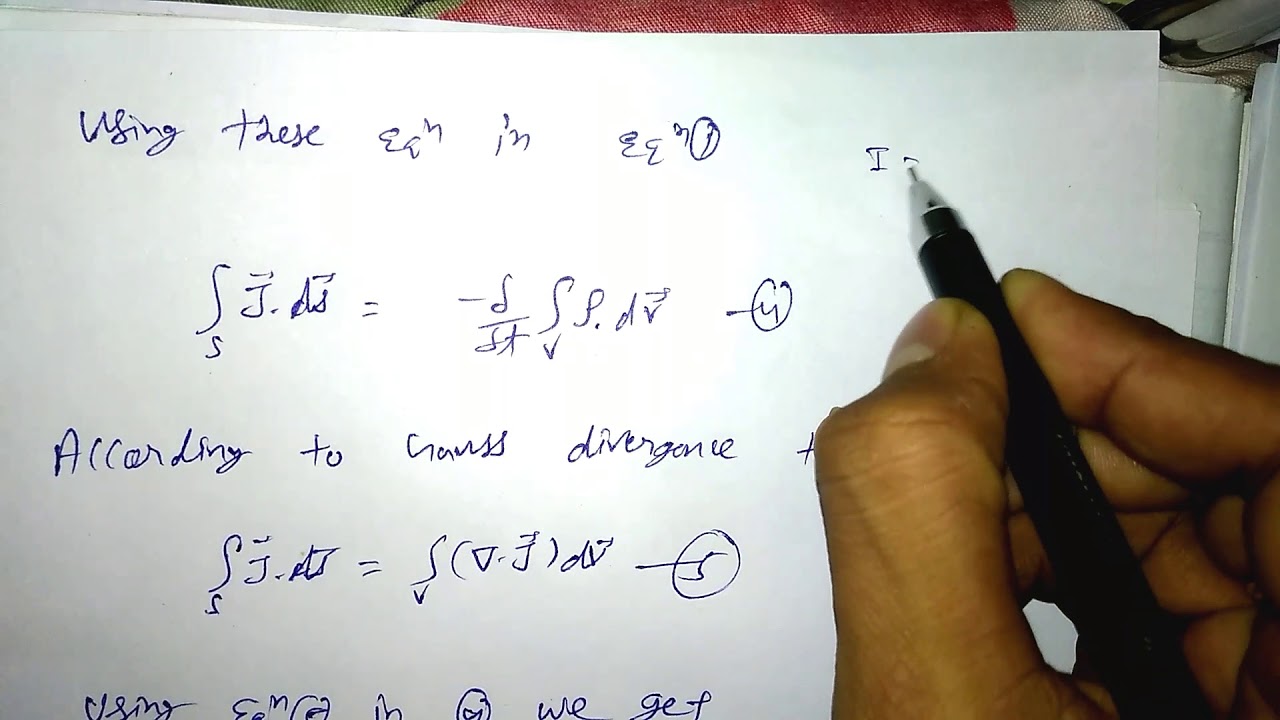 Using these Eqⁿ in Eqⁿ ①
I =
∫_S J⃗. ds⃗ = -δ/δt ∫_V ρ. dv⃗ —④
According to Gauss divergence t
∫_S J⃗. ds⃗ = ∫_V (∇. J⃗) dv⃗ —⑤
Using Eqⁿ in ④ we get